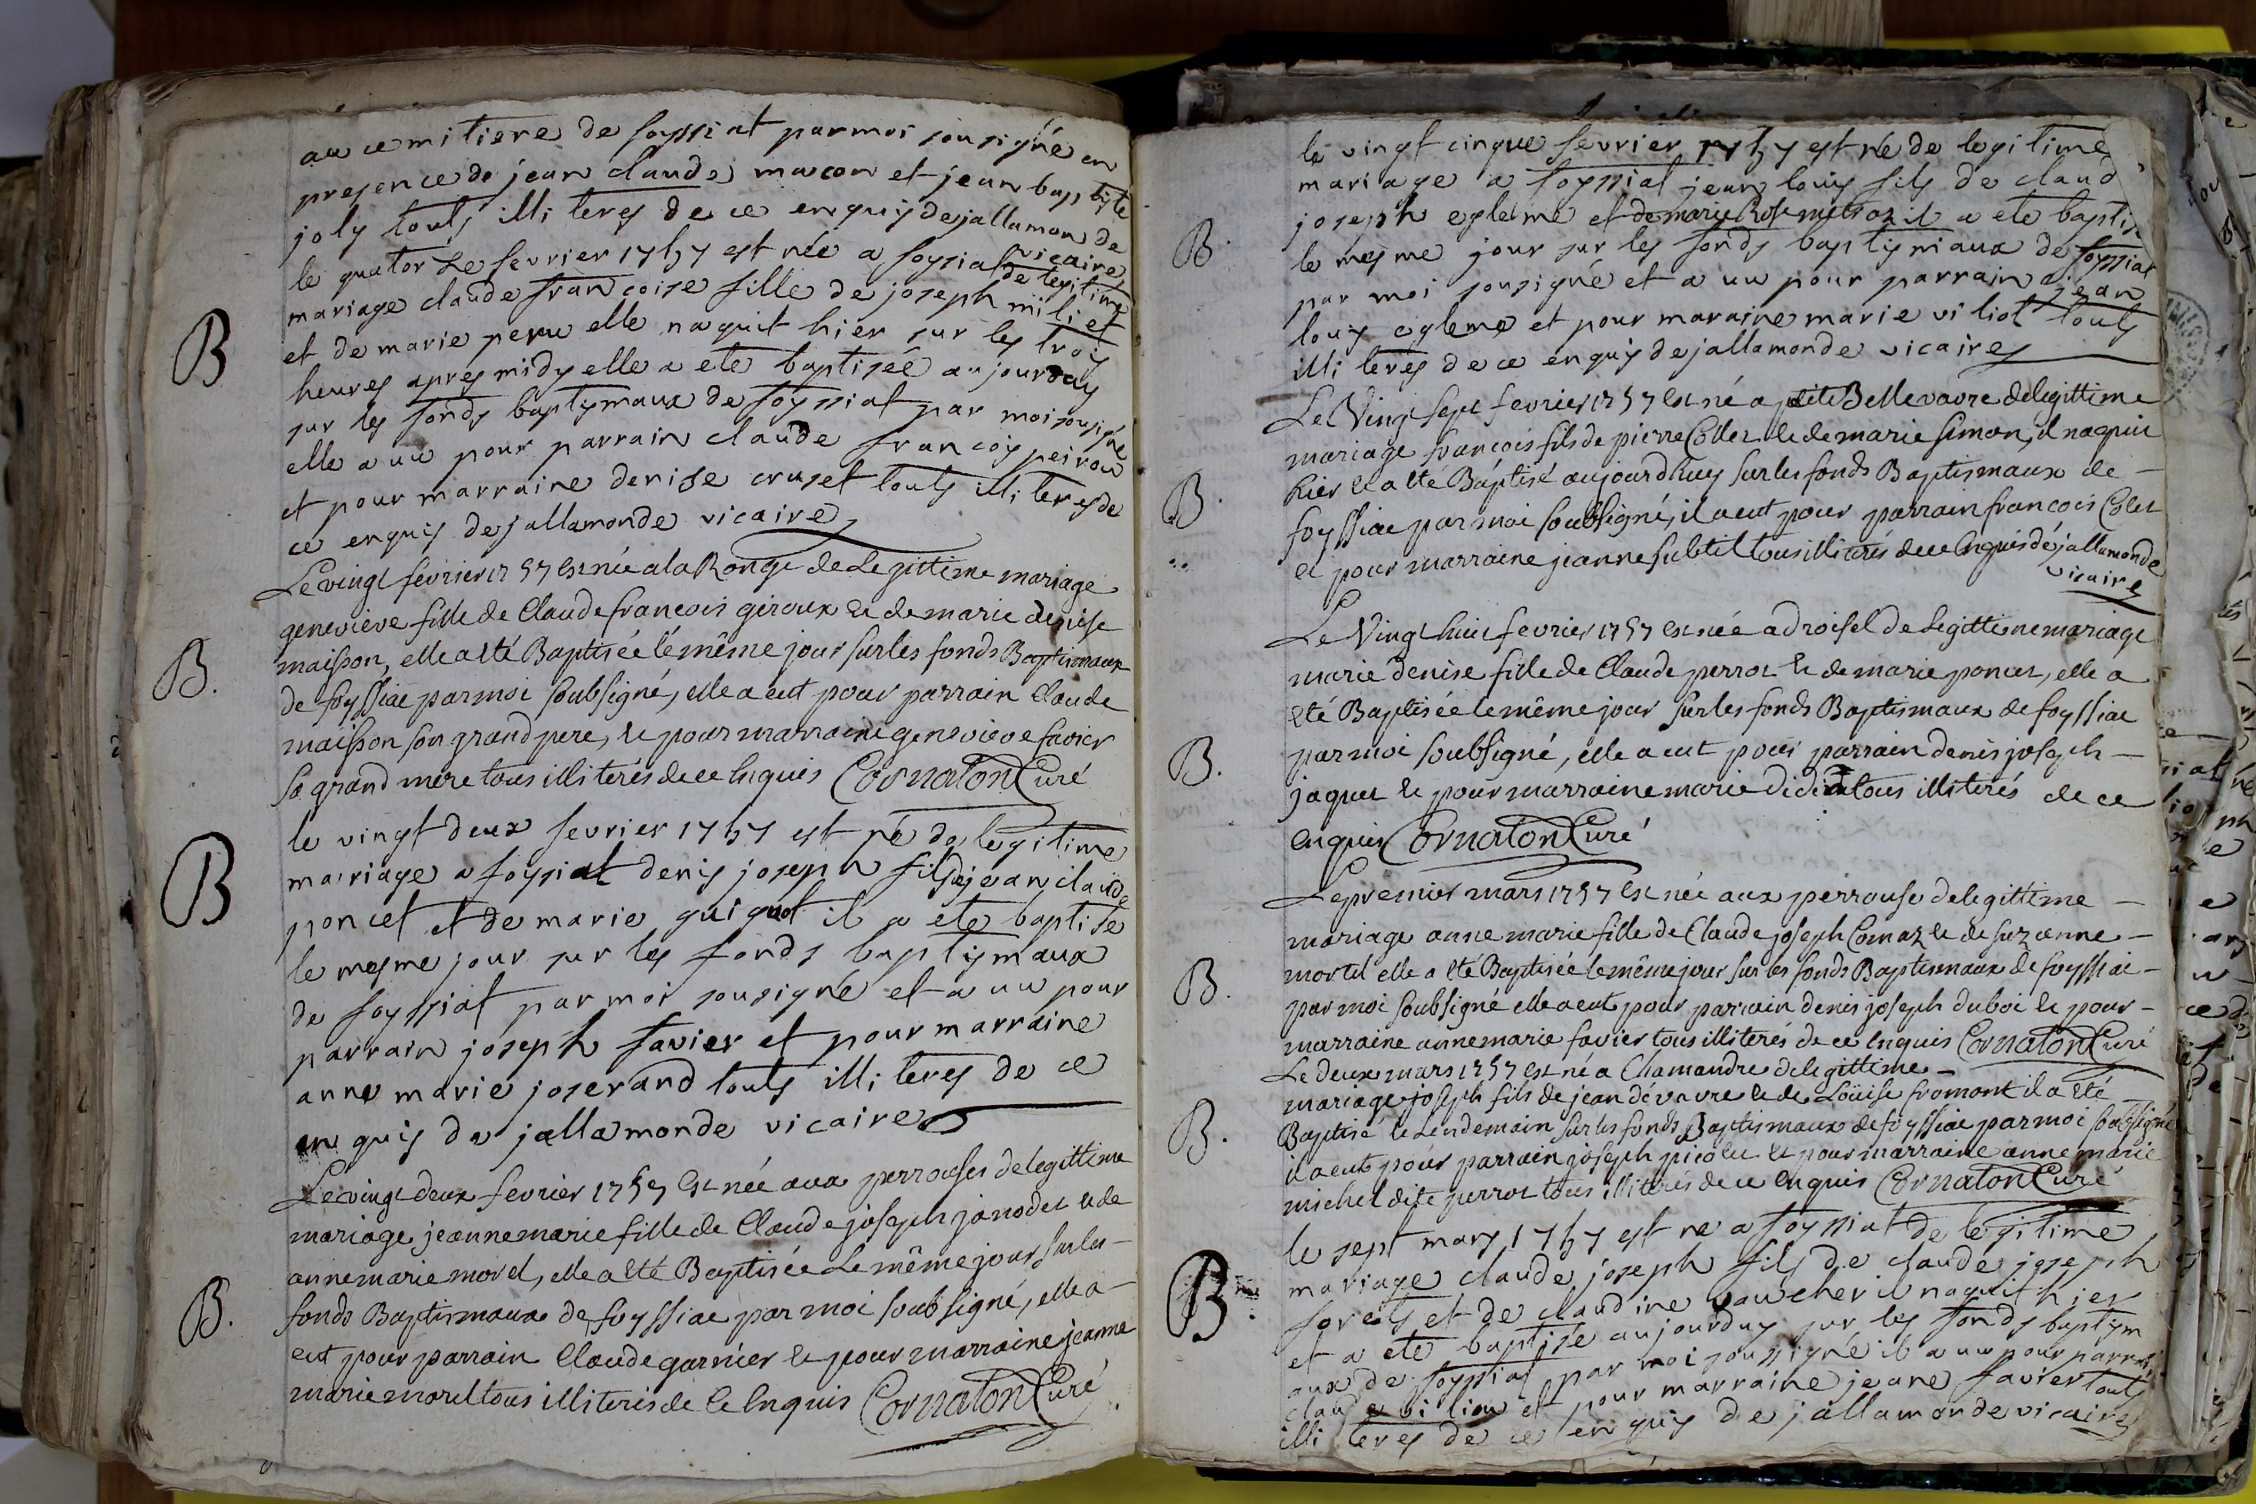 au cemitiere de foyssiat par moi sousigné en
presence de jean claude macon et jean baptiste
joly touts illiteres de ce enquis dejallamonde
vicaire
le quatorze fevrier 1757 est née a foysiat de legitime
mariage claude francoise fille de joseph miliet
et de marie peru elle naquit hier sur les trois
heures apres midy elle a ete baptiseé aujourduy
sur les fonds baptymaux de foyssiat par moi sousigné
elle a uu pour parrain claude francois peirou
et pour marraine denise cruset touts illiteres de
ce enquis dejallamonde vicaire
B
Le vingt fevrier 1757 est née a la Ronge de Legittime mariage
genevieve fille de Claude francois giroux et de marie denise
maisson, elle a été Baptisée le même jour sur les fonds Baptismaux
de foyssiac par moi soubsigné, elle a eut pour parrain Claude
maisson son grand pere, et pour marraine genevieve favier
sa grand mere tous illiterés de ce Enquis Cornaton Curé
B.
le vingt deux fevrier 1757 est né de legitime
mariage a foysiat denis joseph fils de jean claude
poncet et de marie guiguot il a ete baptisé
le mesme jour sur les fonds baptismaux
de foyssiat par moi sousigné et a uu pour
parrain joseph favier et pour marraine
anne marie joserand touts illiteres de ce
enquis de jallamonde vicaire
B
Le vingt deux fevrier 1757 Est née aux perrouses de legittime
mariage jeanne marie fille de Claude joseph janodet et de
anne marie morel, elle a été Baptisée Le même jour sur les
fonds Baptismaux de foyssiac par moi soubsigné, elle a
eut pour parrain Claude garnier et pour marraine jeanne
marie morel tous illiterés de Ce Enquis Cornaton Curé
B.
le vingt cinque fevrier 1757 est né de legitime
mariage a foyssiat jean louis fils de claud
joseph egleme et de marie Rose il a ete bapti
le mesme jour sur les fonds baptismiaux de foyssiat
par moi sousigné et a uu pour parrain jean
louis egleme et pour maraine marie viliot touts
illiterés de ce enquis dejallamonde vicaire
B.
Le Vingt Sept fevrier 1757 Est né a petite Bellevavre de legittime
mariage francois fils de pierre Collet et de marie simon, il naquit
hier et a été Báptisé aujourdhuy sur les fonds Baptismaux de
foyssiac par moi soubsigné, il a eut pour parrain francois Colet
et pour marraine jeanne subtil tous illiterés de ce Enquis déjallamonde
vicaire
B.
Le Vingt huit fevrier 1757 est née a droisel de Legittime mariage
marie denise fille de Claude perrot et de marie poncet, elle a
été Baptisée le même jour sur les fonds Baptismaux de foyssiac
par moi soubsigné, elle a eut pour parrain denis joseph
jaquet et pour marraine marie didiat tous illiterés de ce
enquis Cornaton Curé
B.
Le premier mars 1757 Est née aux perrouse de legittime
mariage anne marie fille de Claude joseph Comaz et de suzanne
mortel elle a été Baptisée le même jour sur les fonds Baptismaux de foyssiac
par moi soubsigné elle a eut pour parrain denis joseph duboi et pour
marraine anne marie favier tous illiterés de ce Enquis Cornaton Curé
B.
Le deux mars 1757 est né a Chamandre de legittime
mariage joseph fils de jean dévavre et de Loüise fromont il a été
Baptisé le Lendemain sur les fonds Baptismaux de foyssiac par moi soubsigné
il a eut pour parrain joseph picolet et pour marraine anne marie
michel dite perrot tous illiterés de ce Enquis Cornaton Curé
B.
le sept mars 1757 est né a foyssiat de legitime
mariage claude joseph fils de claude joseph
foreéts et de claudine vaucher il naquit hier
et a ete baptisé aujourduy sur les fonds baptym
aux de foyssiat par moi soussigné il a uu pour parrai
claude vilion et pour marraine jeane favier touts
illiteres de ce enquis dejallamonde vicaire
B